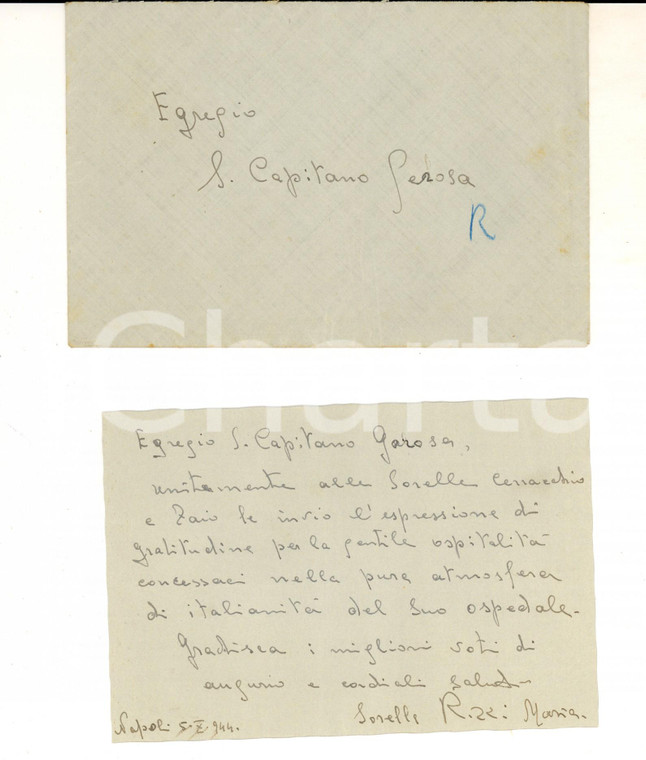 Egregio
S. Capitano Gerosa
R
Charta
Egregio S. Capitano Gerosa,
unitamente alle Sorelle Cernacchio
e Zaio le invio l'espressione di
gratitudine per la gentile ospitalità
concessaci nella pura atmosfera
di italianità del Suo ospedale.
Gradisca i migliori voti di
augurio e cordiali saluti
Sorella Rizzi Maria.
Napoli 5.X.944.